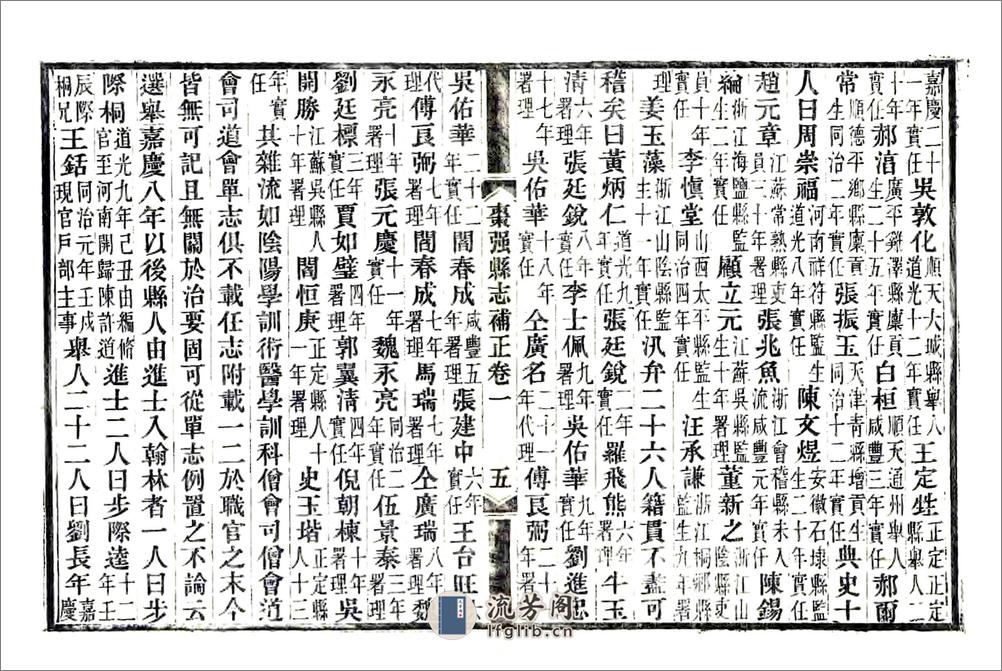 嘉慶二十一年實任吳敦化順天大城縣舉人道光十二年實任王定甡正定正定縣舉人二
十年實任郝湻廣平雞澤縣廩貢生二十五年實任白桓順天通州舉人咸豐三年實任郝爾
常順德平鄉縣廩貢生同治二年實任張振玉天津青縣增貢生同治十二年實任典史十
人曰周崇福河南祥符縣監生道光八年實任陳文煜安徽石埭縣監生二十年實任陳錫
趙元章江蘇常熟縣吏員三十年署理張兆魚浙江會稽縣未入流咸豐元年實任
綸浙江海鹽縣監生二年實任顧立元江蘇吳縣監生十年署理董新之浙江山陰縣吏
員十年實任李愼堂山西太平縣監生同治四年實任汪承謙浙江桐鄉縣監生九年署
理姜玉藻浙江山陰縣監生十一年實任汛弁二十六人籍貫不盡可
稽矣曰黃炳仁道光九年實任張廷銳二年實任羅飛熊六年實任牛玉
清六年實任張廷銳八年實任李士佩九年實任吳佑華九年實任劉進忠
十七年署理吳佑華十八年實任仝廣名二十一年代理傅良弼二十一年署理
棗强縣志補正卷一
五
吳佑華二十二年實任閻春成咸豐五年署理張建中六年實任王台旺六年
代理傅良弼七年署理閻春成七年實任馬瑞七年署理仝廣瑞八年署理魏
永亮十年署理張元慶十一年實任魏永亮同治二年實任伍景泰三年實任
劉廷標三年實任賈如璧四年署理郭翼清四年實任倪朝棟十四年署理吳
開勝江蘇吳縣人十年署理閻恒庚正定縣人十一年署理史玉堦正定縣人十三
年實任其雜流如陰陽學訓術醫學訓科僧會司僧會道
會司道會單志俱不載任志附載一二於職官之末今
皆無可記且無關於治要固可從單志例置之不論云
選舉嘉慶八年以後縣人由進士入翰林者一人曰步
際桐道光九年己丑由編修官至河南開歸陳許道進士二人曰步際逵嘉慶十二
辰際桐兄王銛同治元年壬戌現官戶部主事舉人二十二人曰劉長年嘉慶
流芳阁
lfglib.cn